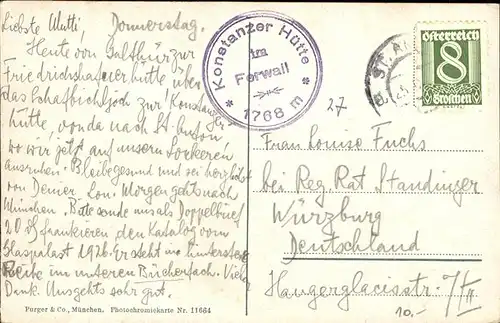 Liebste Mutti, Donnerstag.
Heute von Galthür zur
Friedrichshafener hütte über
das Schafbichljoch zur Konstanzer-
hütte, von da nach St. Anton
wo wir jetzt auf unsern Lorbeeren
ausruhen. Bleibe gesund und sei herzlichst
von Deiner Lou. Morgen gehts nach
München. Bitte sende uns als Doppelbrief
20 frankieren den Katalog vom
Glaspalast 1926. Er steht im hintersten
Reihe im unteren Bücherfach. Vielen
Dank. Uns gehts sehr gut.
Purger & Co., München. Photochromiekarte Nr. 11664
Konstanzer Hütte
im
Ferwall
1768 m
27
Österreich
8
Groschen
Frau Louise Fuchs
bei Reg. Rat Standinger
Würzburg
Deutschland
Haugerglacisstr. 7/II
10.-